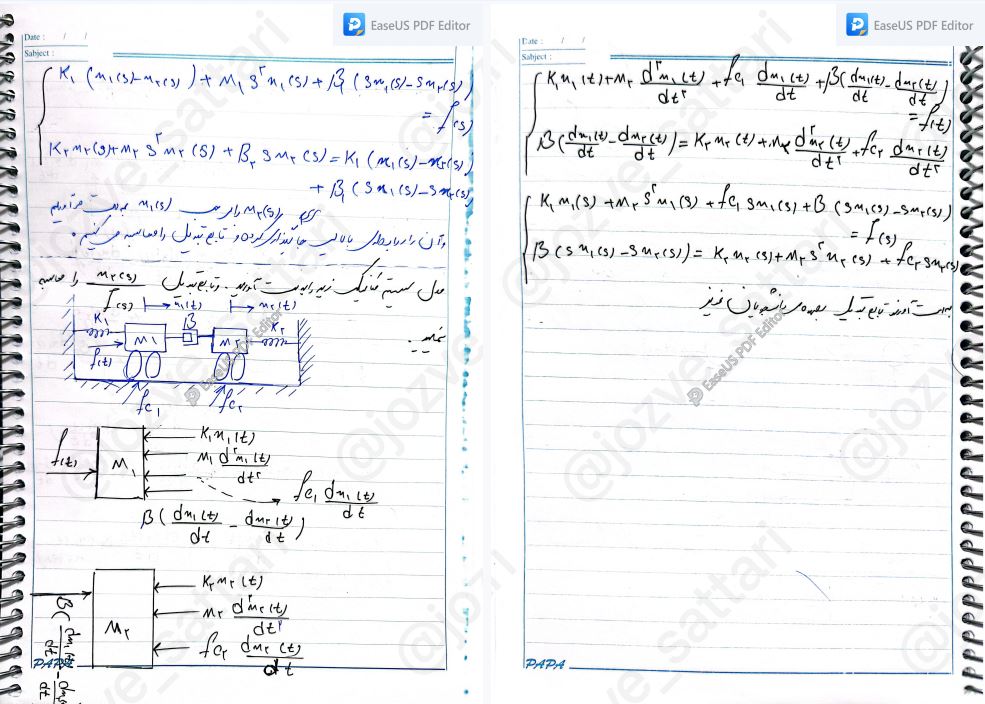 EaseUS PDF Editor
Date : / /
Sabject :
K₁ (x₁(s)-x₂(s)) + M₁ s² x₁(s) + β₁ (s x₁(s) - s x₂(s))
= f(s)
K₂ x₂(s) + M₂ s² x₂(s) + β₂ s x₂(s) = K₁ (x₁(s) - x₂(s))
+ β₁ (s x₁(s) - s x₂(s))
x₂(s) را بر حسب x₁(s) بدست می‌آوریم
و آن را در رابطه‌ی بالایی جایگذاری کرده و تابع تبدیل را محاسبه می‌کنیم.
مدل سیستم مکانیکی زیر را بدست آورید. و تابع تبدیل x₂(s)/f(s) را محاسبه
نمایید.
x₁(t) x₂(t)
K₁ M₁ β M₂ K₂
f(t)
fc₁ fc₂
f(t) M₁
K₁x₁(t)
M₁ d²x₁(t)/dt²
fc₁ dx₁(t)/dt
β( dx₁(t)/dt - dx₂(t)/dt )
M₂
K₂x₂(t)
M₂ d²x₂(t)/dt²
fc₂ dx₂(t)/dt
β( dx₁(t)/dt - dx₂/dt
PAPA
EaseUS PDF Editor
Date : / /
Sabject :
K₁x₁(t) + M₂ d²x₁(t)/dt² + fc₁ dx₁(t)/dt + β( dx₁(t)/dt - dx₂(t)/dt )
= f(t)
β( dx₁(t)/dt - dx₂(t)/dt ) = K₂x₂(t) + M₂ d²x₂(t)/dt² + fc₂ dx₂(t)/dt²
K₁x₁(s) + M₂ s² x₁(s) + fc₁ s x₁(s) + β (s x₁(s) - s x₂(s))
= f(s)
β (s x₁(s) - s x₂(s)) = K₂x₂(s) + M₂ s² x₂(s) + fc₂ s x₂(s)
بدست آوردن تابع تبدیل بعهده‌ی دانشجویان عزیز
PAPA
@jozve_sattari